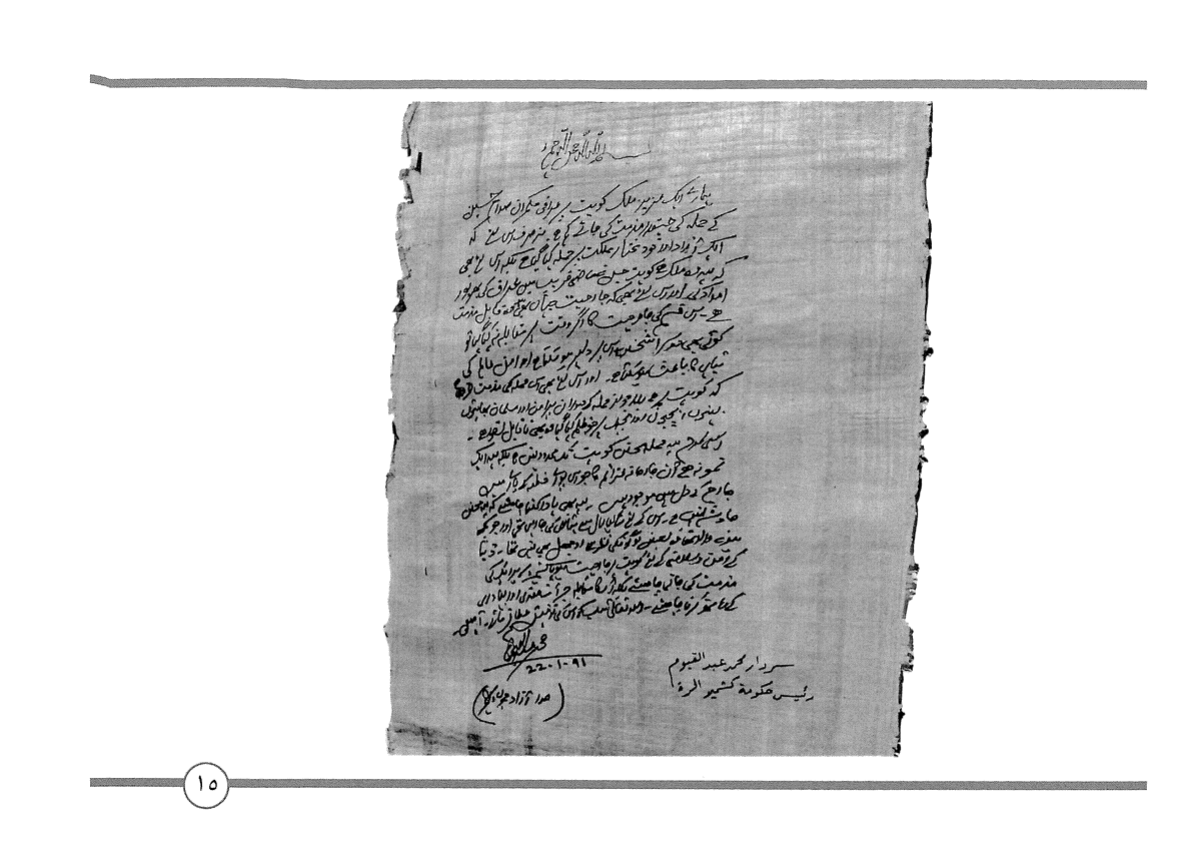 بسم اللہ الرحمن الرحیم
ہمارے ایک عزیز ملک کویت پر عراقی حکمران صدام حسین
کے حملہ کی جتنی مذمت کی جائے کم ہے۔ نہ صرف اس لئے کہ
ایک آزاد اور خود مختار مملکت پر حملہ کیا گیا ہے بلکہ اس لئے بھی
کہ یہ وہ ملک ہے کویت جس نے ماضی قریب میں عراق کی بھرپور
امداد کی اور اس لئے بھی کہ جارحیت جہاں بھی ہو قابل مذمت
ہے۔ اس قسم کی جارحیت کا اگر وقت پر مقابلہ نہ کیا گیا تو
کوئی بھی دوسرا شخص اس پر دلیر ہو سکتا ہے اور امن عالم کی
تباہی کا باعث ہو سکتا ہے۔ اور اس لئے بھی اس حملہ کی مذمت
کہ کویت پر حملہ کے دوران پرامن اور مسلمان بھائیوں
بہنوں، بچوں پر جو ظلم کیا گیا وہ بھی ناقابل
یہ حملہ محض کویت تک محدود نہیں ہے بلکہ یہ ایک
نمونہ ہے ان جارحانہ عزائم کا جو اس پورے
جارح کے دل میں موجود ہیں۔ یہ بھی یاد رکھنا چاہئے کہ یہ محض
حادثہ نہیں ہے۔ اس کے لئے سالہا سال سے تیاری کی جا رہی تھی اور جو کچھ
ہونے والا تھا وہ بعض لوگوں کی نظر سے اوجھل بھی نہیں تھا۔ دنیا
کے امن و سلامتی کے لئے کویت پر جارحیت کی
مذمت کی جانی چاہئے بلکہ اس کا مقابلہ جرأت مندی اور بہادری
کے ساتھ کرنا چاہئے۔ اللہ تعالی سب کو اس کی توفیق عطا فرمائے۔ آمین۔
محمد عبدالقیوم
22.1.91
(صدر آزاد جموں و کشمیر)
سردار محمد عبد القیوم
رئيس حكومة كشمير الحرة
١٥